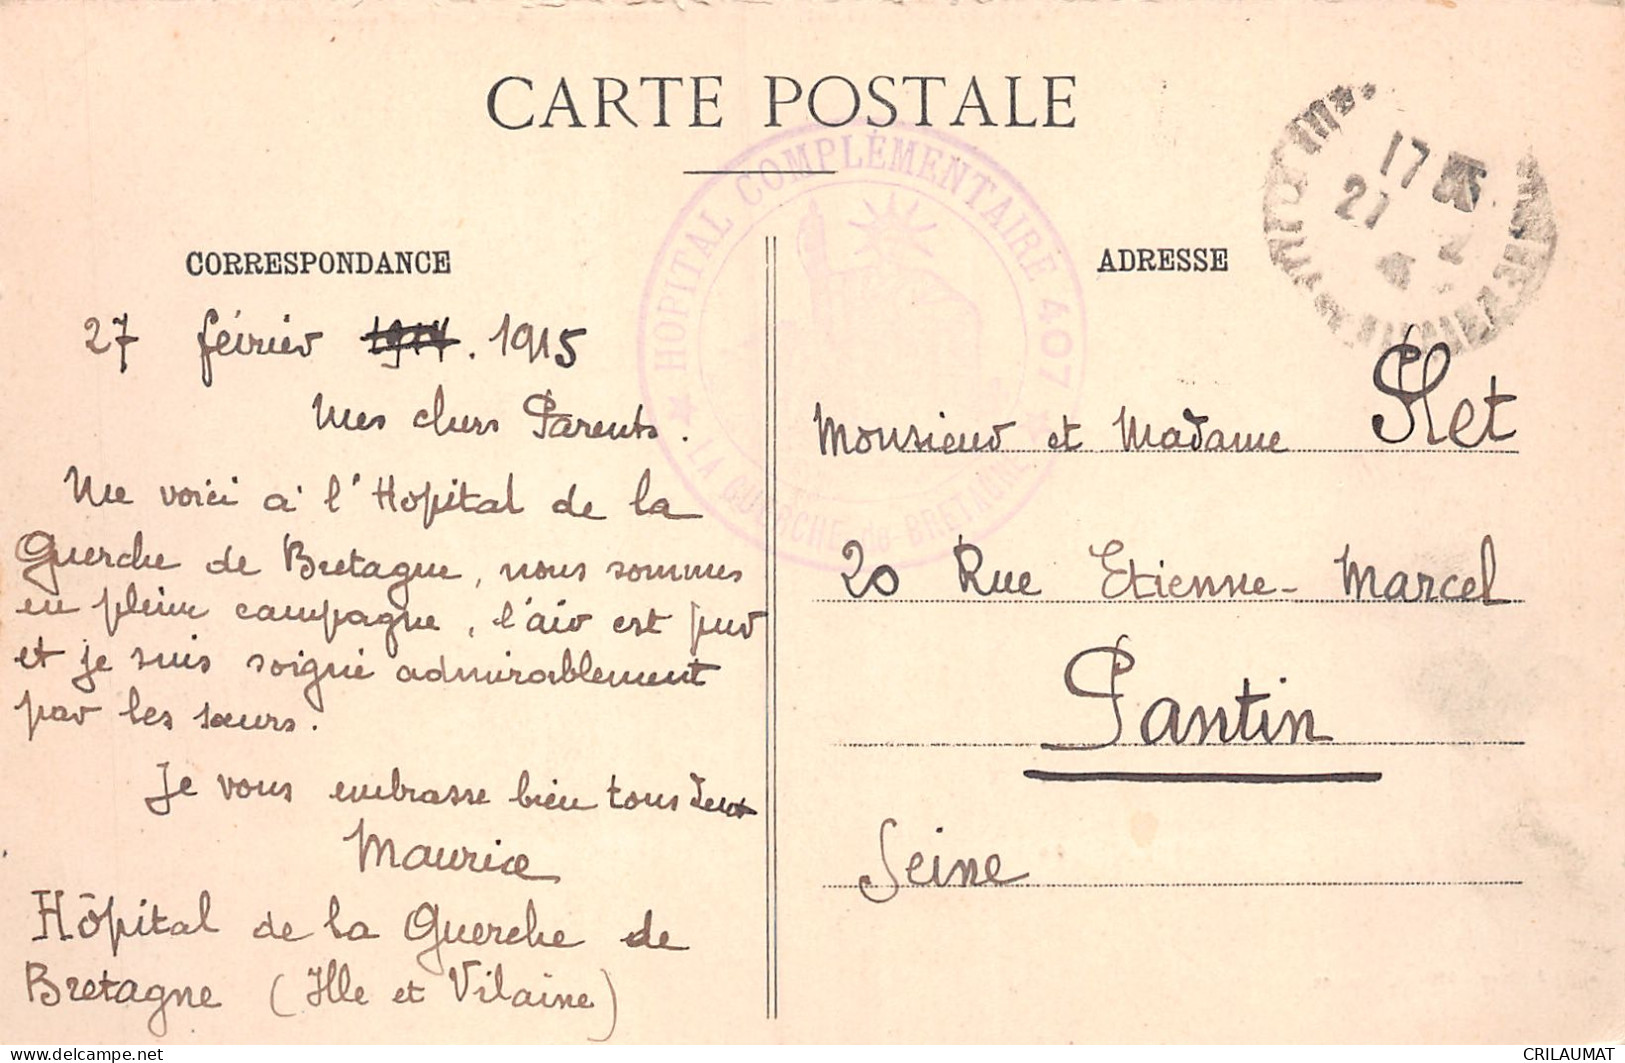 CARTE POSTALE
HOPITAL COMPLÉMENTAIRE 407
LA GUERCHE-de-BRETAGNE
17
27
CORRESPONDANCE
27 février 1914. 1915
Mes chers Parents.
Me voici à l'Hopital de la
Guerche de Bretagne, nous sommes
en pleine campagne, l'air est pur
et je suis soigné admirablement
par les sœurs.
Je vous embrasse bien tous deux
Maurice
Hôpital de la Guerche de
Bretagne (Ille et Vilaine)
ADRESSE
Monsieur et Madame
20 Rue Etienne-Marcel
Pantin
Seine
delcampe.net
CRILAUMAT